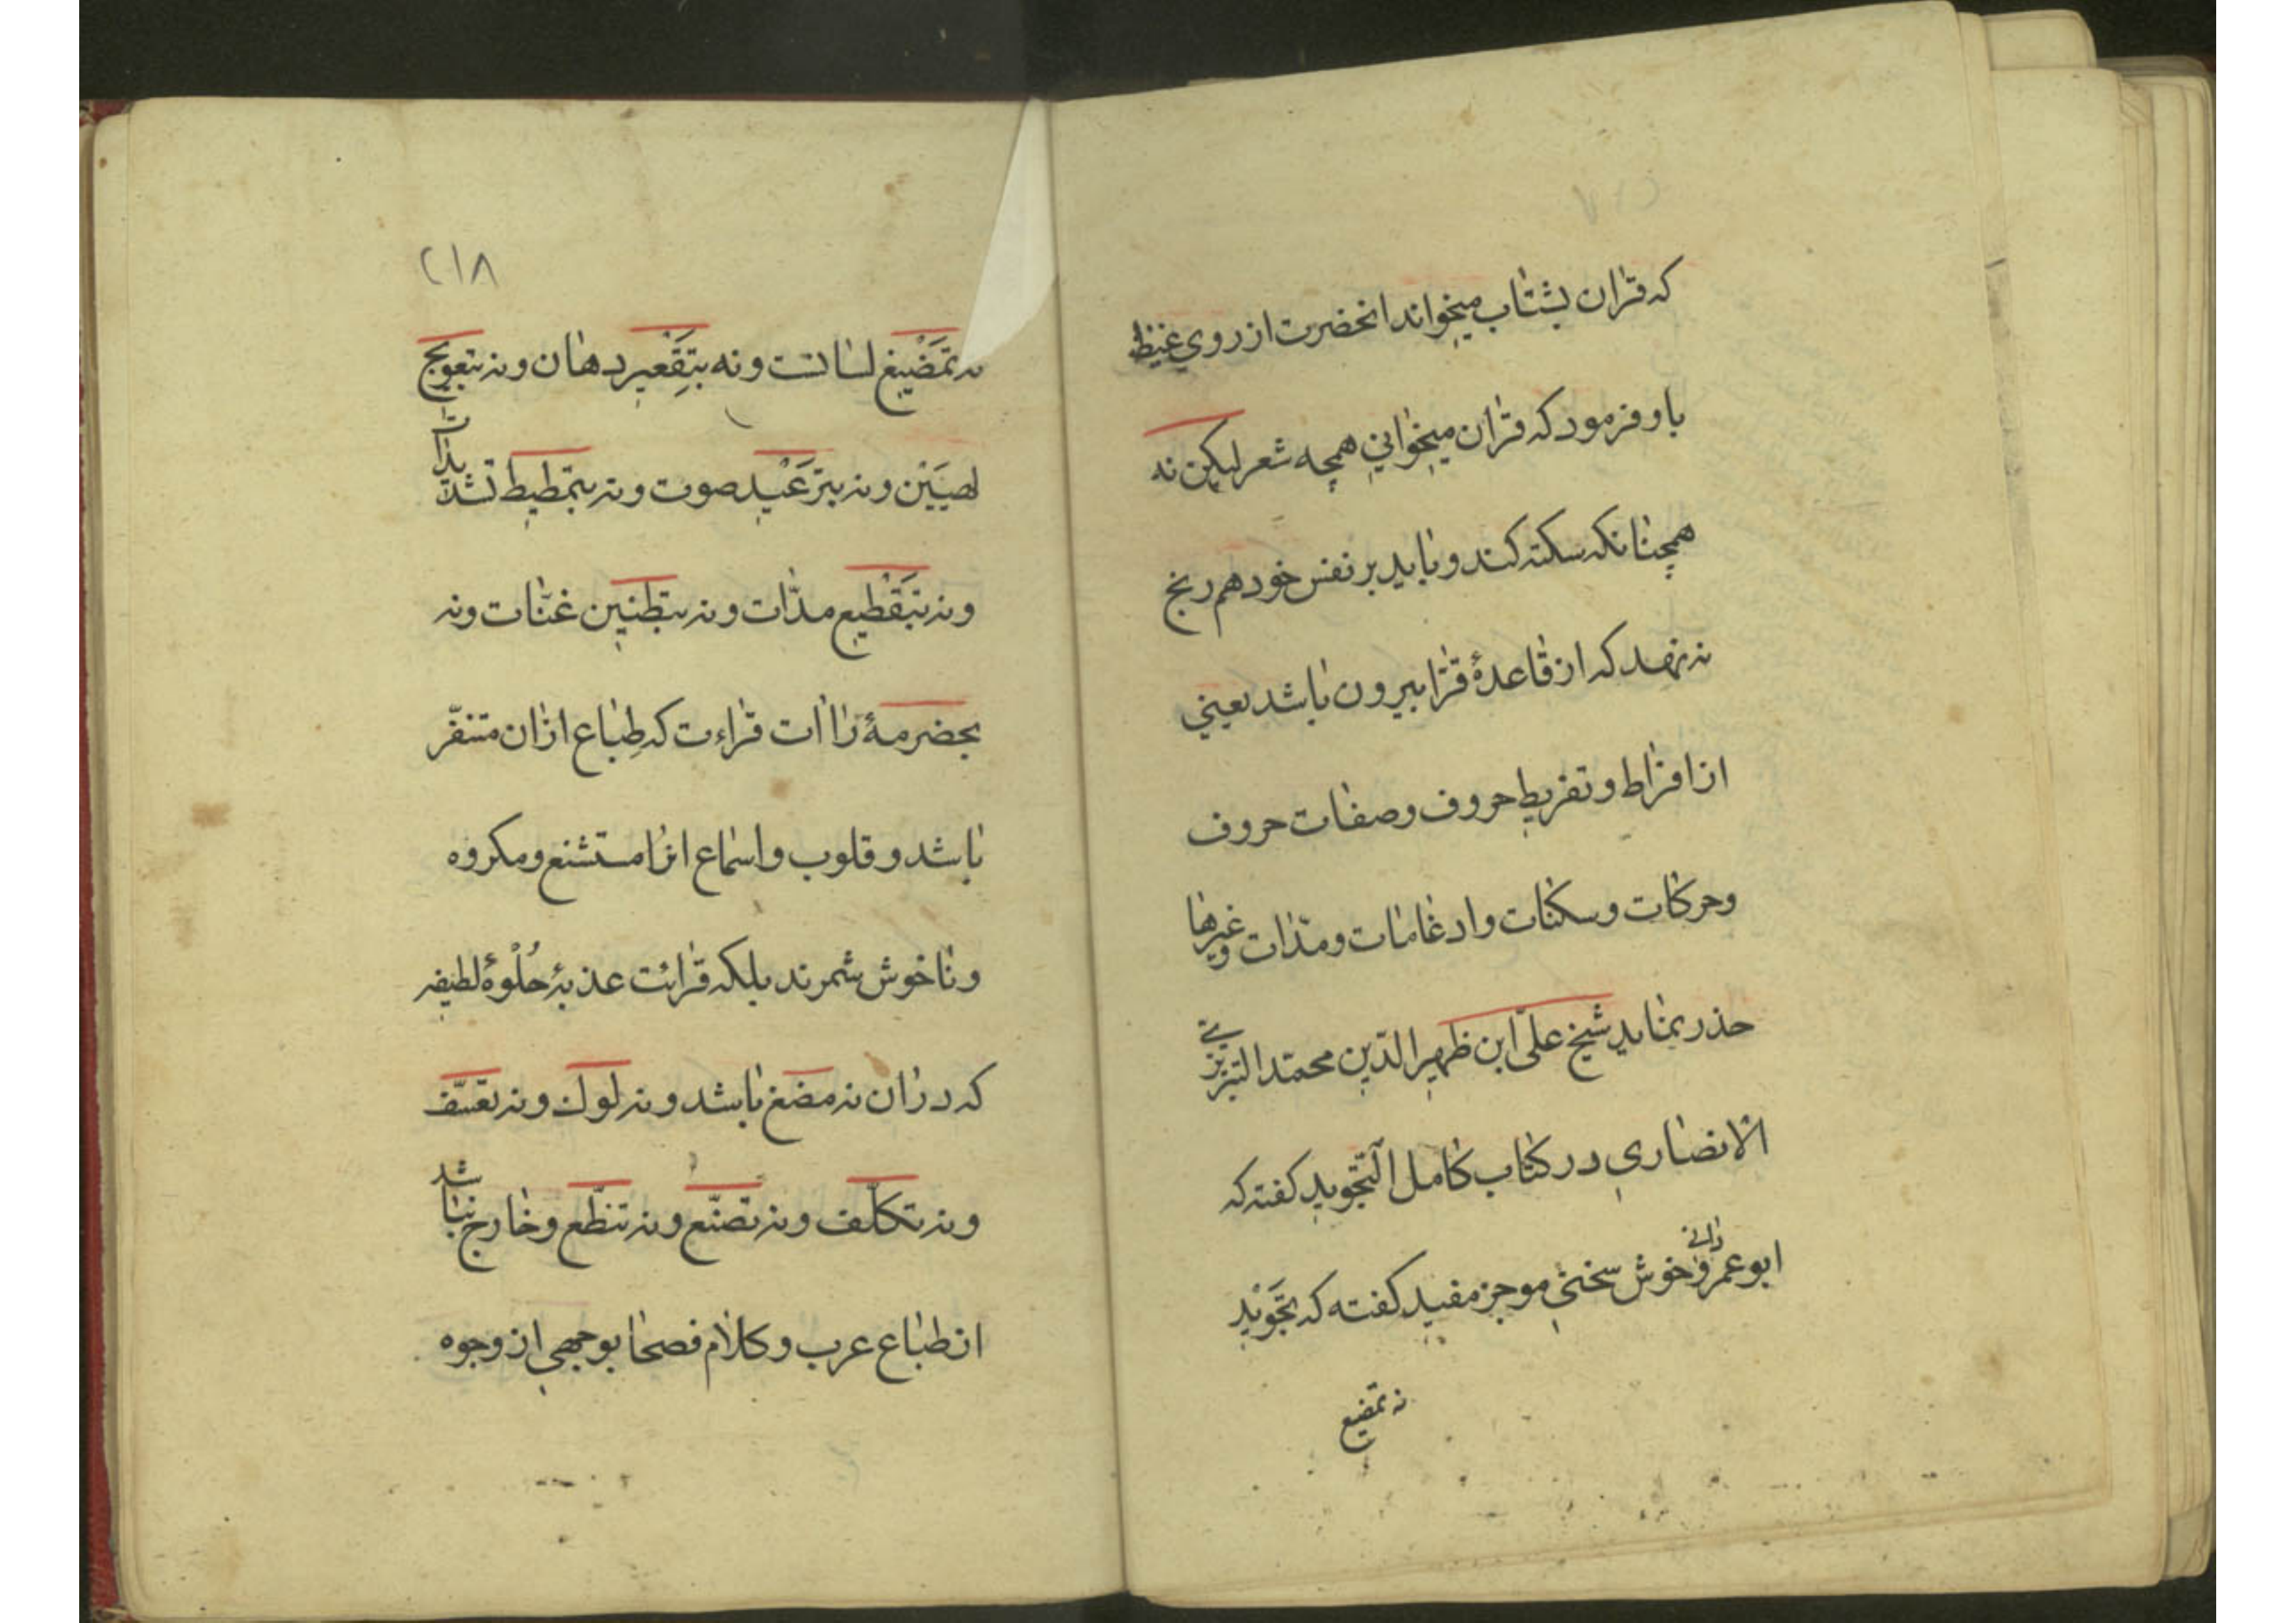 که قران بشتاب میخواند انحضرت از روی غیظ
باو فرمود که قران میخوانی همچه شعر لیکن نه
همچنانکه سکته کند و باید بر نفس خود هم رنج
نه نهد که از قاعدهٔ قرا بیرون باشد یعنی
از افراط و تفریط حروف و صفات حروف
و حرکات و سکنات و ادغامات و مدّات و غیرها
حذر بنماید شیخ علی ابن ظهیر الدّین محمّد التبریزی
الانصاری در کتاب کامل التّجوید کفته که
ابو عمرو دانی خوش سخنی موجز مفید کفته که تجَوْید
نه تمضیغ
۲۱۸
نه تمَضْیغ لسانست و نه بتَقْعیر دهان و نه بتعویج
لحیَیْن و نه بترَعْید صوت و نه بتمطیط تشدیدات
و نه بتَقْطیع مدّات و نه بتطنین غنّات و نه
بحضرمهٔ راات قراءت که طِباع ازان متنفّر
باشد و قلوب و اسماع انرا مستشنع و مکروه
و ناخوش شمرند بلکه قرائت عذبهٔ حُلْوهٔ لطیفه
که دران نه مضغ باشد و نه لوك و نه تعسّف
و نه تکلّف و نه تصنّع و نه تنطّع و خارج نباشد
از طباع عرب و کلام فصحا بوجهی از وجوه